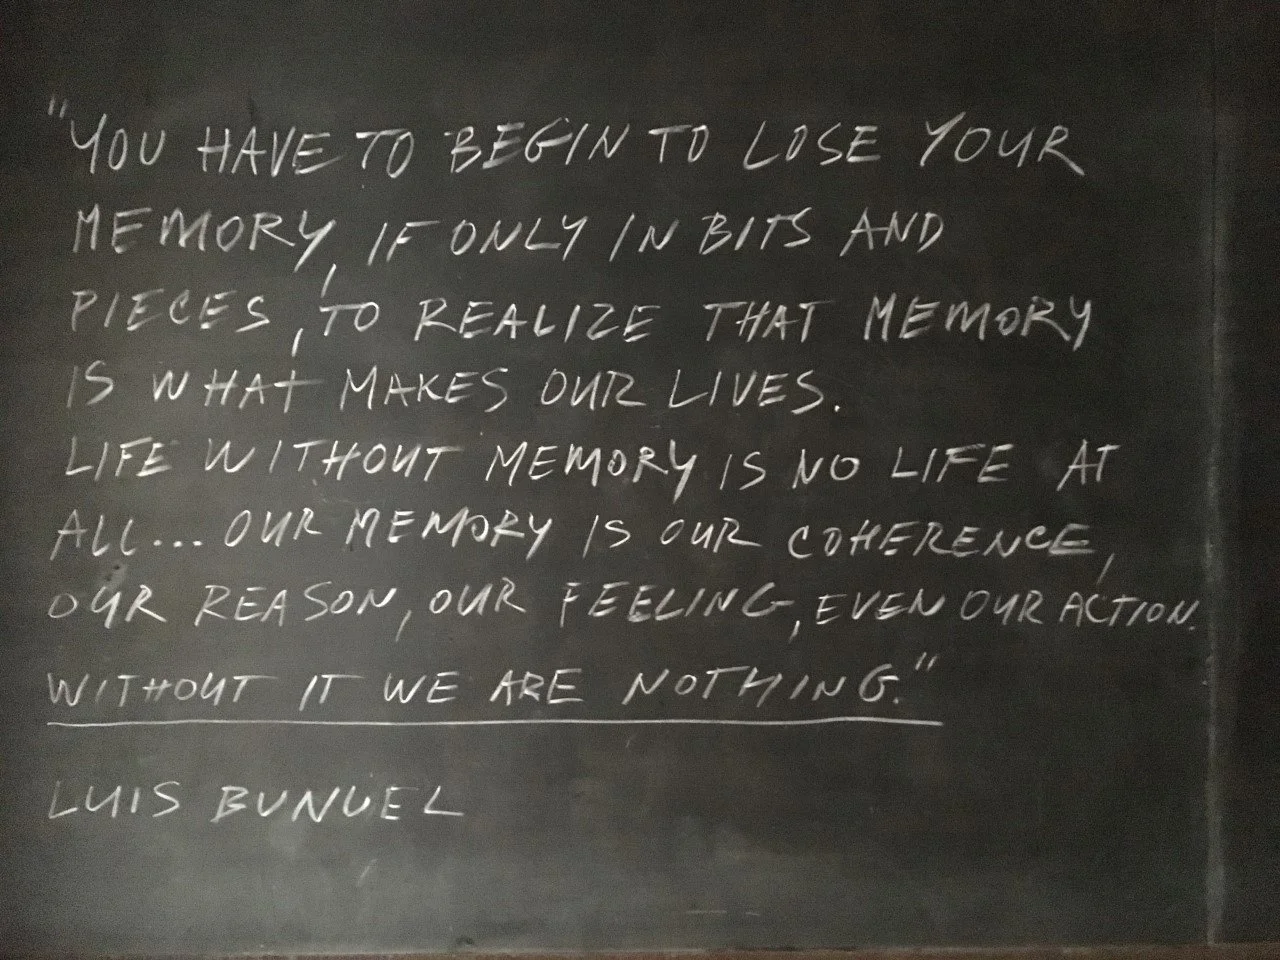 "YOU HAVE TO BEGIN TO LOSE YOUR
MEMORY, IF ONLY IN BITS AND
PIECES, TO REALIZE THAT MEMORY
IS WHAT MAKES OUR LIVES.
LIFE WITHOUT MEMORY IS NO LIFE AT
ALL... OUR MEMORY IS OUR COHERENCE,
OUR REASON, OUR FEELING, EVEN OUR ACTION.
WITHOUT IT WE ARE NOTHING."
LUIS BUNUEL